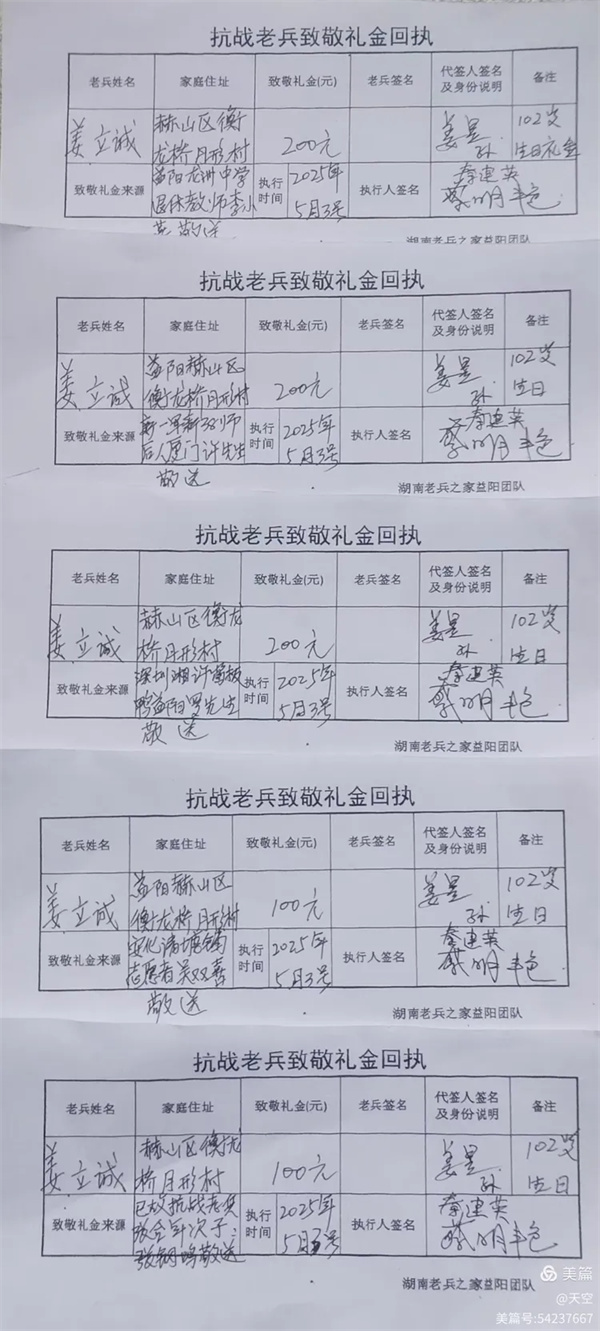 抗战老兵致敬礼金回执
老兵姓名 家庭住址 致敬礼金(元) 老兵签名 代签人签名及身份说明 备注
姜立诚 赫山区衡龙桥月形村 200元 姜昱 孙 102岁生日礼金
致敬礼金来源 益阳龙洲中学退休教师李小英敬送 执行时间 2025年5月3号 执行人签名 秦建英
湖南老兵之家益阳团队
抗战老兵致敬礼金回执
老兵姓名 家庭住址 致敬礼金(元) 老兵签名 代签人签名及身份说明 备注
姜立诚 益阳赫山区衡龙桥月形村 200元 姜昱 孙 102岁生日
致敬礼金来源 新一军新38师后人厦门许先生敬送 执行时间 2025年5月3号 执行人签名 秦建英
湖南老兵之家益阳团队
抗战老兵致敬礼金回执
老兵姓名 家庭住址 致敬礼金(元) 老兵签名 代签人签名及身份说明 备注
姜立诚 赫山区衡龙桥月形村 200元 姜昱 孙 102岁生日
致敬礼金来源 深圳湘许蜀板鸭益阳罗先生敬送 执行时间 2025年5月3号 执行人签名 秦建英
湖南老兵之家益阳团队
抗战老兵致敬礼金回执
老兵姓名 家庭住址 致敬礼金(元) 老兵签名 代签人签名及身份说明 备注
姜立诚 益阳赫山区衡龙桥月形村 100元 姜昱 孙 102岁生日
致敬礼金来源 安化清塘铺志愿者吴双喜敬送 执行时间 2025年5月3号 执行人签名 秦建英
湖南老兵之家益阳团队
抗战老兵致敬礼金回执
老兵姓名 家庭住址 致敬礼金(元) 老兵签名 代签人签名及身份说明 备注
姜立诚 赫山区衡龙桥月形村 100元 姜昱 孙 102岁生日
致敬礼金来源 已故抗战老兵 次子: 敬送 执行时间 2025年5月3号 执行人签名 秦建英
湖南老兵之家益阳团队
美篇
@天空
美篇号:54237667